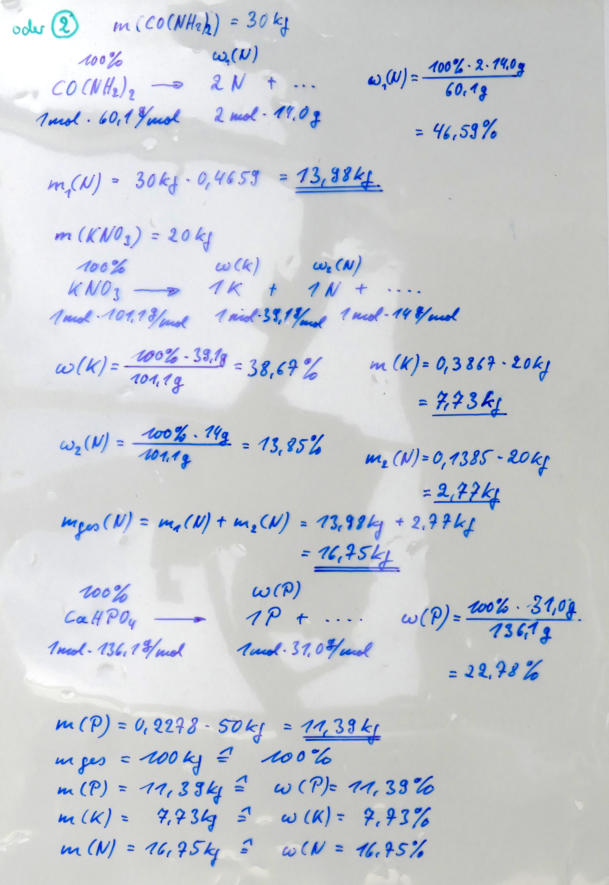 oder ② m(CO(NH₂)₂) = 30 kg
100% ω₁(N)
CO(NH₂)₂ → 2 N + ... ω₁(N) = 100% · 2 · 14,0g / 60,1g
1mol · 60,1g/mol 2 mol · 14,0g = 46,59%
m₁(N) = 30kg · 0,4659 = 13,98kg
m(KNO₃) = 20kg
100% ω(K) ω₂(N)
KNO₃ → 1K + 1N + ....
1mol · 101,1g/mol 1mol · 39,1g/mol 1mol · 14g/mol
ω(K) = 100% · 39,1g / 101,1g = 38,67% m(K) = 0,3867 · 20kg
= 7,73kg
ω₂(N) = 100% · 14g / 101,1g = 13,85% m₂(N) = 0,1385 · 20kg
= 2,77kg
mges(N) = m₁(N) + m₂(N) = 13,98kg + 2,77kg
= 16,75kg
100% ω(P)
CaHPO₄ → 1P + .... ω(P) = 100% · 31,0g / 136,1g
1mol · 136,1g/mol 1mol · 31,0g/mol = 22,78%
m(P) = 0,2278 · 50kg = 11,39kg
mges = 100kg ≙ 100%
m(P) = 11,39kg ≙ ω(P) = 11,39%
m(K) = 7,73kg ≙ ω(K) = 7,73%
m(N) = 16,75kg ≙ ω(N = 16,75%